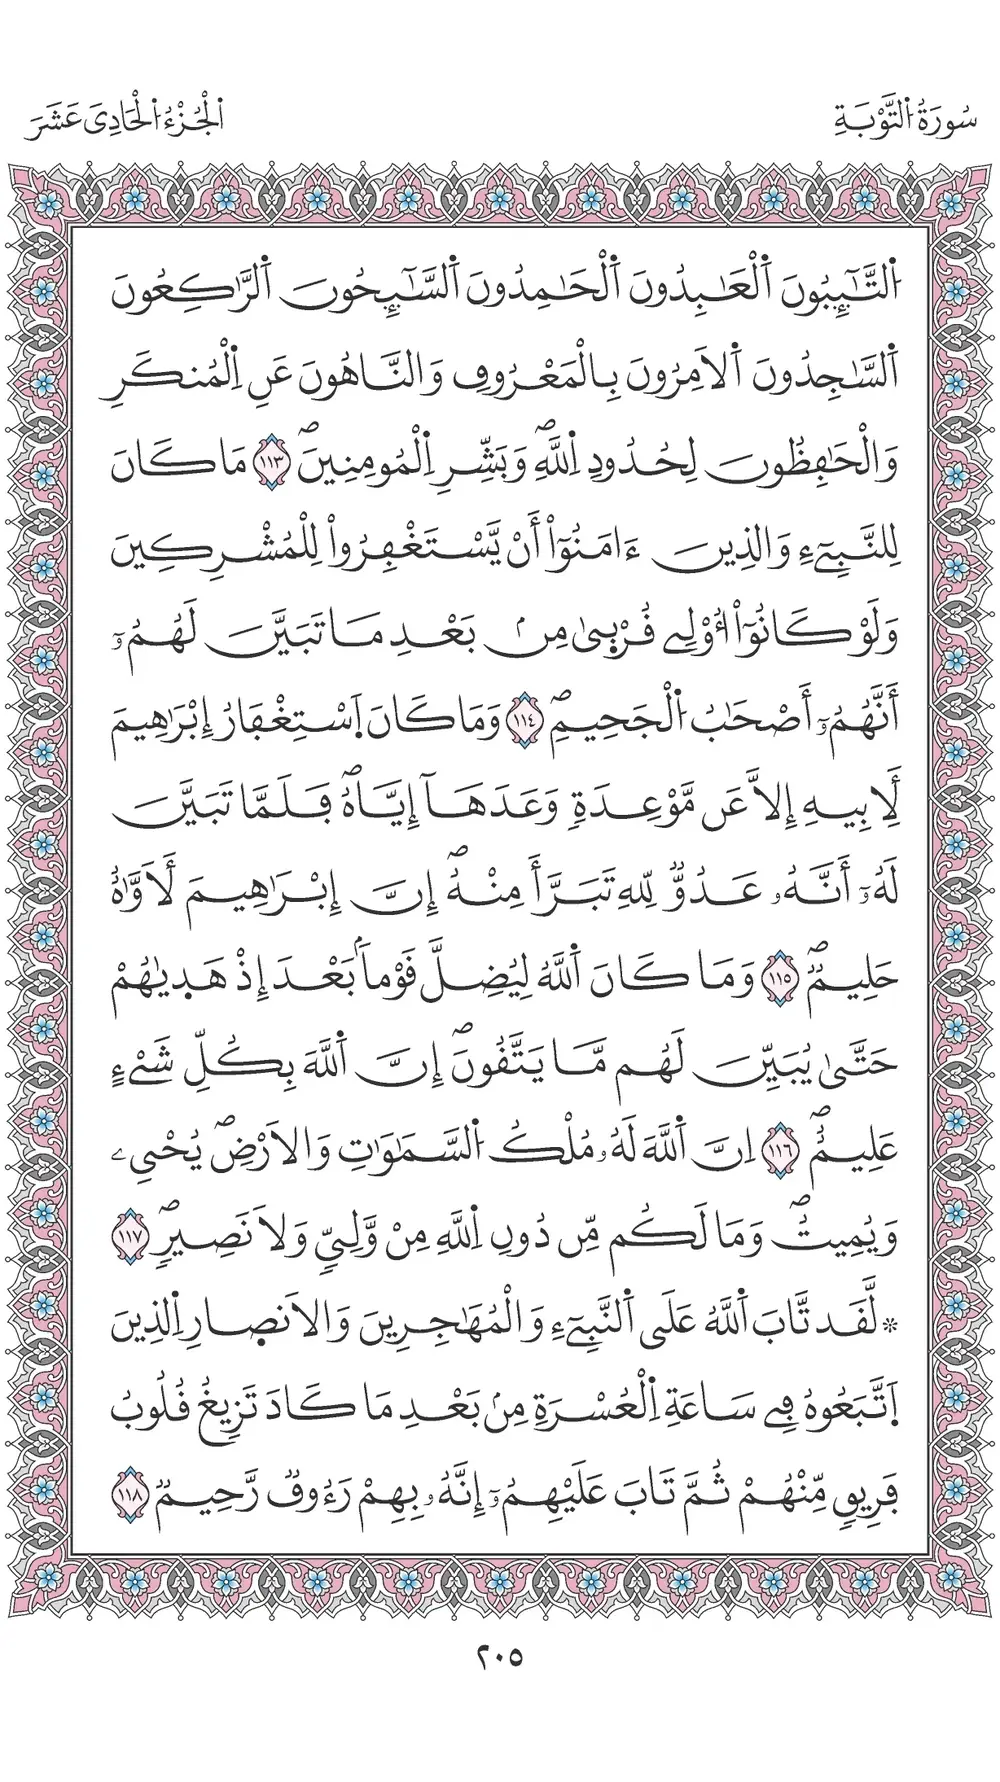 سُورَةُ التَّوْبَةِ
الْجُزْءُ الْحَادِيَ عَشَرَ
اَ۬لتَّٰٓئِبُونَ اَ۬لْعَٰبِدُونَ اَ۬لْحَٰمِدُونَ اَ۬لسَّٰٓئِحُونَ اَ۬لرَّٰكِعُونَ
اَ۬لسَّٰجِدُونَ اَ۬لَامِرُونَ بِالْمَعْرُوفِ وَالنَّاهُونَ عَنِ اِ۬لْمُنكَرِ
وَالْحَٰفِظُونَ لِحُدُودِ اِ۬للَّهِۖ وَبَشِّرِ اِ۬لْمُومِنِينَۖ ١١٣ مَا كَانَ
لِلنَّبِيٓءِ وَالذِينَ ءَامَنُوٓاْ أَنْ يَّسْتَغْفِرُواْ لِلْمُشْرِكِينَ
وَلَوْ كَانُوٓاْ أُوْلِے قُرْب۪يٰ مِنۢ بَعْدِ مَا تَبَيَّنَ لَهُمُۥٓ
أَنَّهُمُۥٓ أَصْحَٰبُ اُ۬لْجَحِيمِۖ ١١٤ وَمَا كَانَ اَ۪سْتِغْفَارُ إِبْرَٰهِيمَ
لِأَبِيهِ إِلَّا عَن مَّوْعِدَةٖ وَعَدَهَآ إِيَّاهُۖ فَلَمَّا تَبَيَّنَ
لَهُۥٓ أَنَّهُۥ عَدُوّٞ لِّلهِ تَبَرَّأَ مِنْهُۖ إِنَّ إِبْرَٰهِيمَ لَأَوَّٰهٌ
حَلِيمٞۖ ١١٥ وَمَا كَانَ اَ۬للَّهُ لِيُضِلَّ قَوْماَۢ بَعْدَ إِذْ هَد۪يٰهُمْ
حَتَّىٰ يُبَيِّنَ لَهُم مَّا يَتَّقُونَۖ إِنَّ اَ۬للَّهَ بِكُلِّ شَےْءٍ
عَلِيمٌۖ ١١٦ اِنَّ اَ۬للَّهَ لَهُۥ مُلْكُ اُ۬لسَّمَٰوَٰتِ وَالَارْضِۖ يُحْيِۦ
وَيُمِيتُۖ وَمَا لَكُم مِّن دُونِ اِ۬للَّهِ مِنْ وَّلِيّٖ وَلَا نَصِيرٖۖ ١١٧
* لَّقَد تَّابَ اَ۬للَّهُ عَلَى اَ۬لنَّبِيٓءِ وَالْمُهَٰجِرِينَ وَالَانصِارِ اِ۬لذِينَ
اَ۪تَّبَعُوهُ فِے سَاعَةِ اِ۬لْعُسْرَةِ مِنۢ بَعْدِ مَا كَادَ تَزِيغُ قُلُوبُ
فَرِيقٖ مِّنْهُمْ ثُمَّ تَابَ عَلَيْهِمُۥٓ إِنَّهُۥ بِهِمْ رَءُوفٞ رَّحِيمٞ ١١٨
٢٠٥